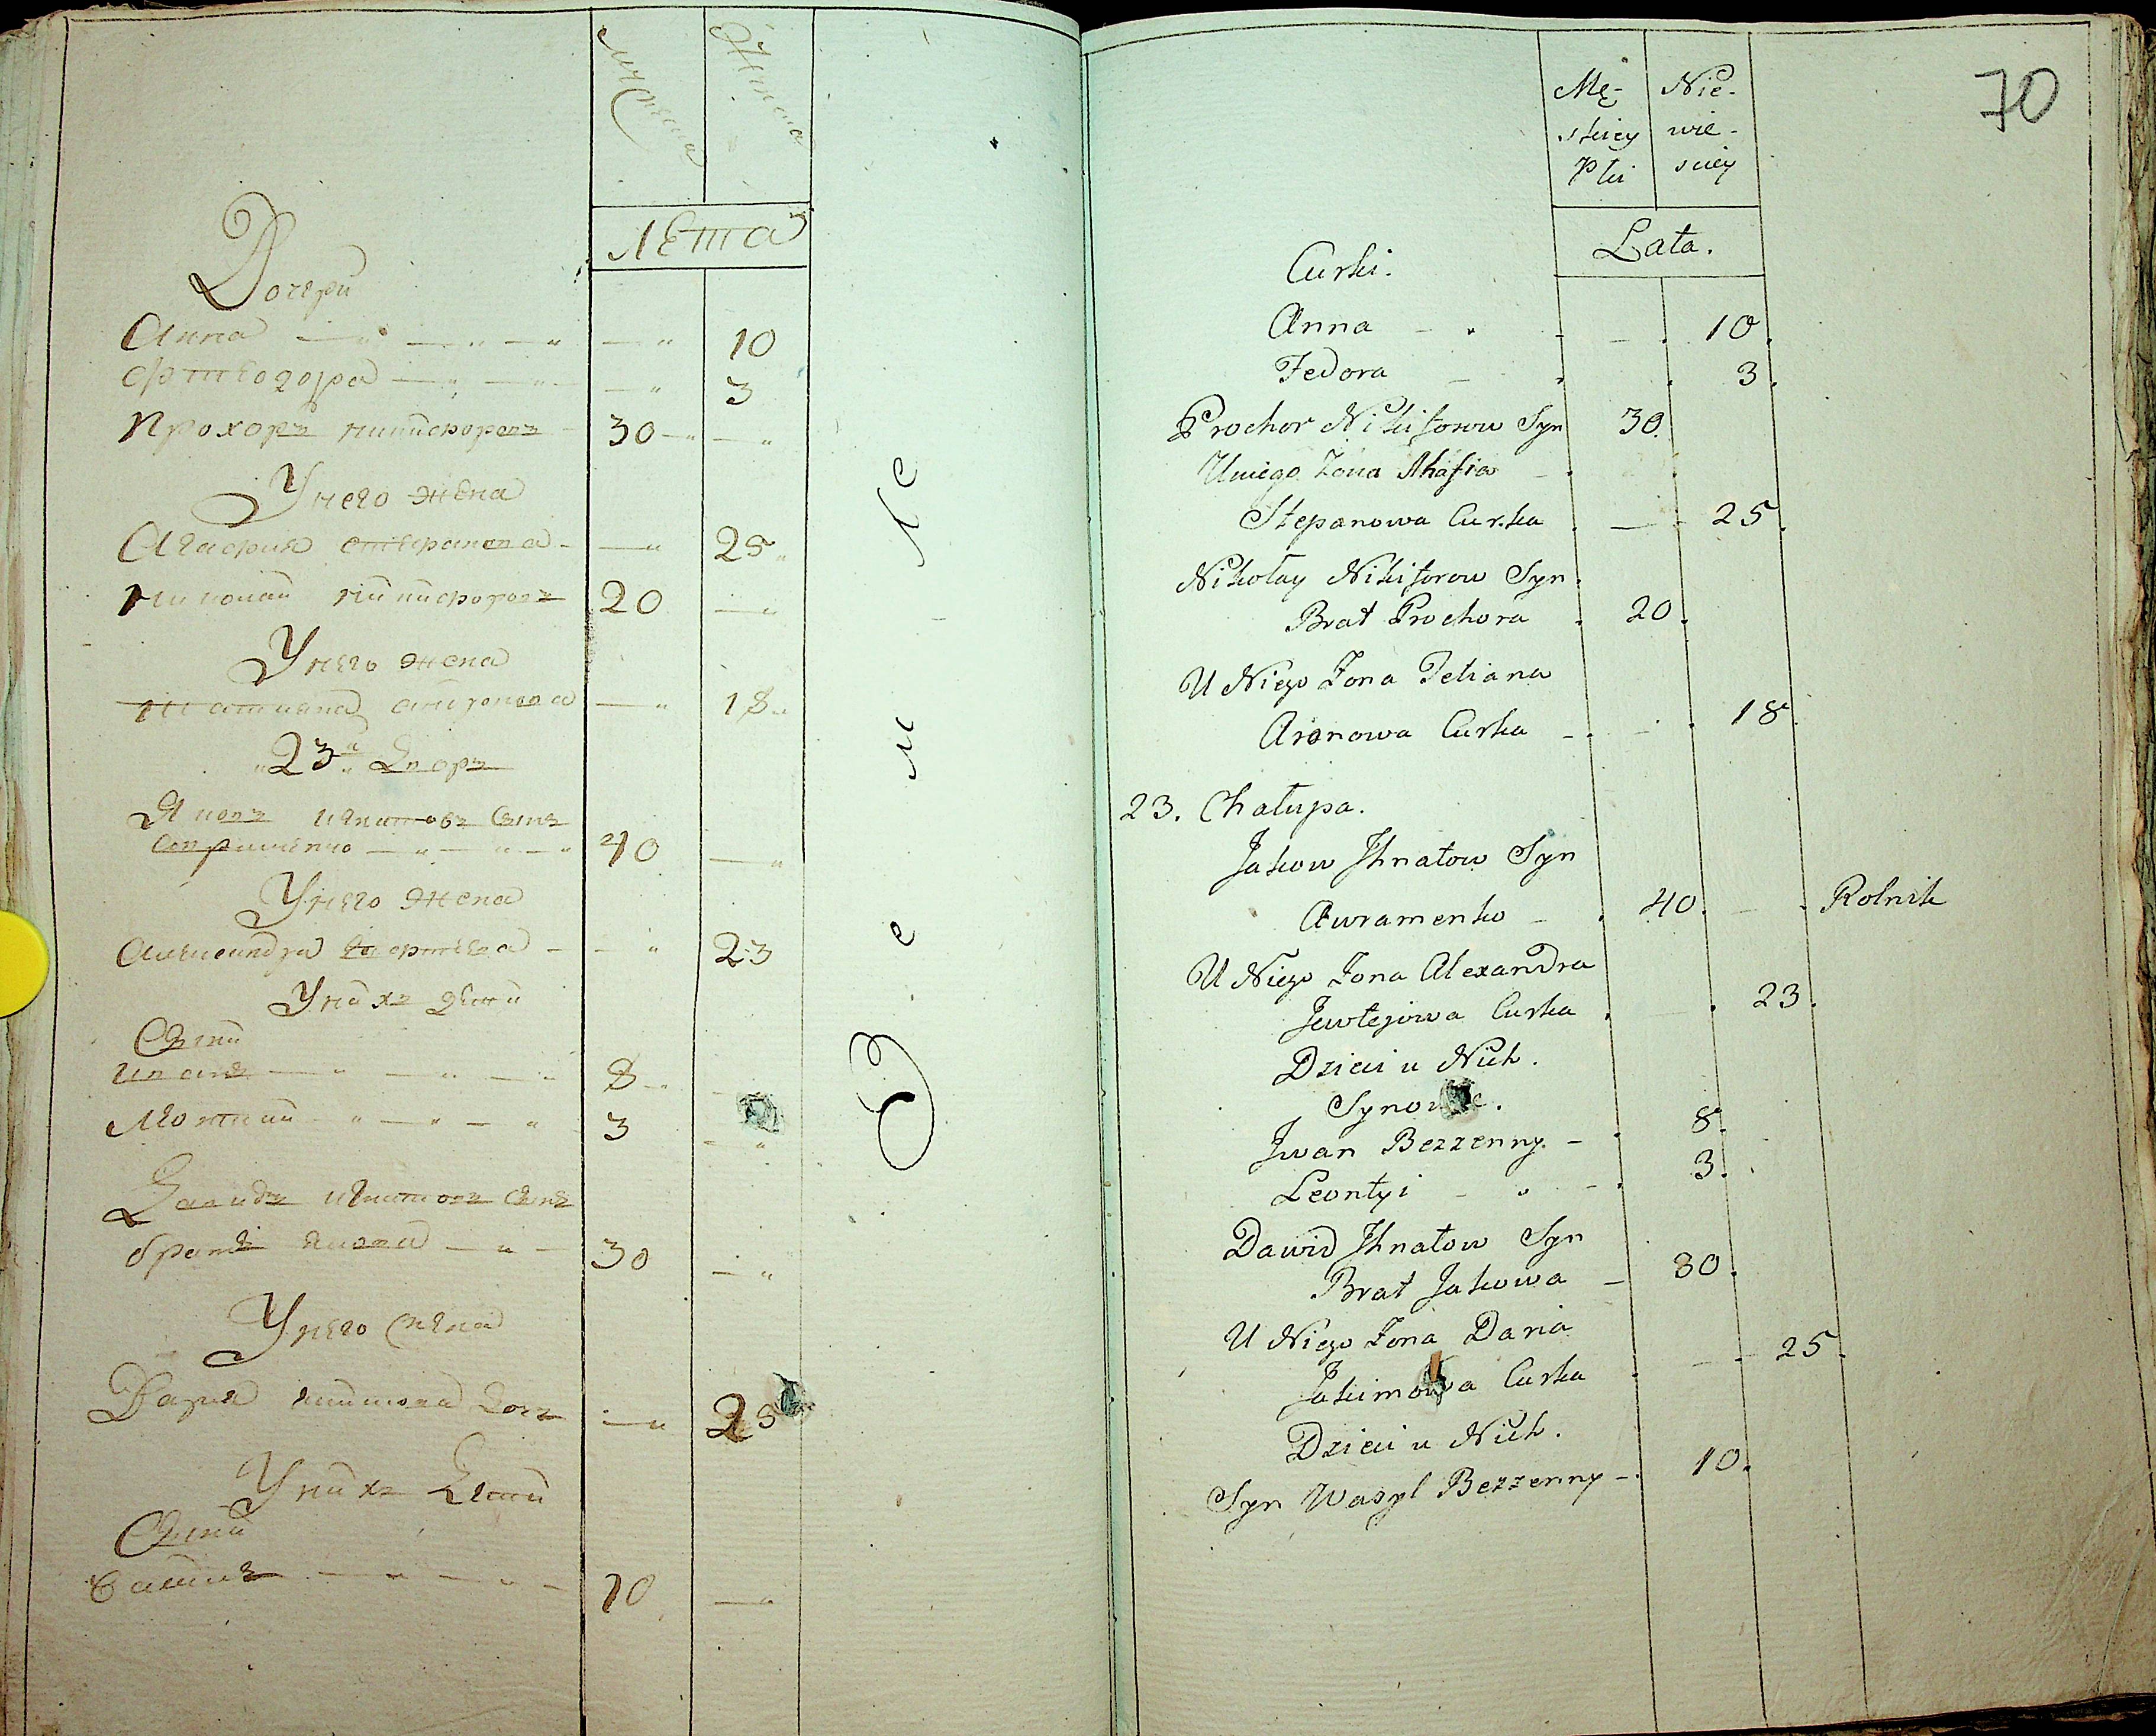 Мужска
Женска
Лета
Дочери
Анна 10
Фтеодора 3
Прохоръ Никифоровъ 30
У него жена
Агафия Степанова 25
Николай Никифоровъ 20
У него жена
Татиана 18
23й Дворъ
Яковъ Игнатовъ Сынъ
Авраменко 40
У него жена
Александра 23
У нихъ дети
Сыны
Иванъ 8
Леонтий 3
Давидъ Игнатовъ Сынъ
братъ Якова 30
У него жена
Дария Дочь 25
У нихъ Дети
Сыны
Василь 10
Земле
70
Mę- Nie-
skiey wie-
Płci sciey
Lata.
Curki.
Anna 10.
Fedora 3.
Prochor Nikiforow Syn 30.
U niego Zona Ahafia
Stepanowa Curka 25.
Nikołay Nikiforow Syn
Brat Prochora 20.
U Niego Zona Tetiana
Aronowa Curka 18.
23. Chałupa.
Jakow Ihnatow Syn
Awramenko 40. Rolnik
U Niego Zona Alexandra
Jewtejowa Curka 23.
Dzieci u Nich.
Synowie.
Jwan Bezzenny 8.
Leontyi 3.
Dawid Ihnatow Syn
Brat Jakowa 30.
U Niego Zona Daria
Jakimowa Curka 25.
Dzieci u Nich.
Syn Wasyl Bezzenny 10.